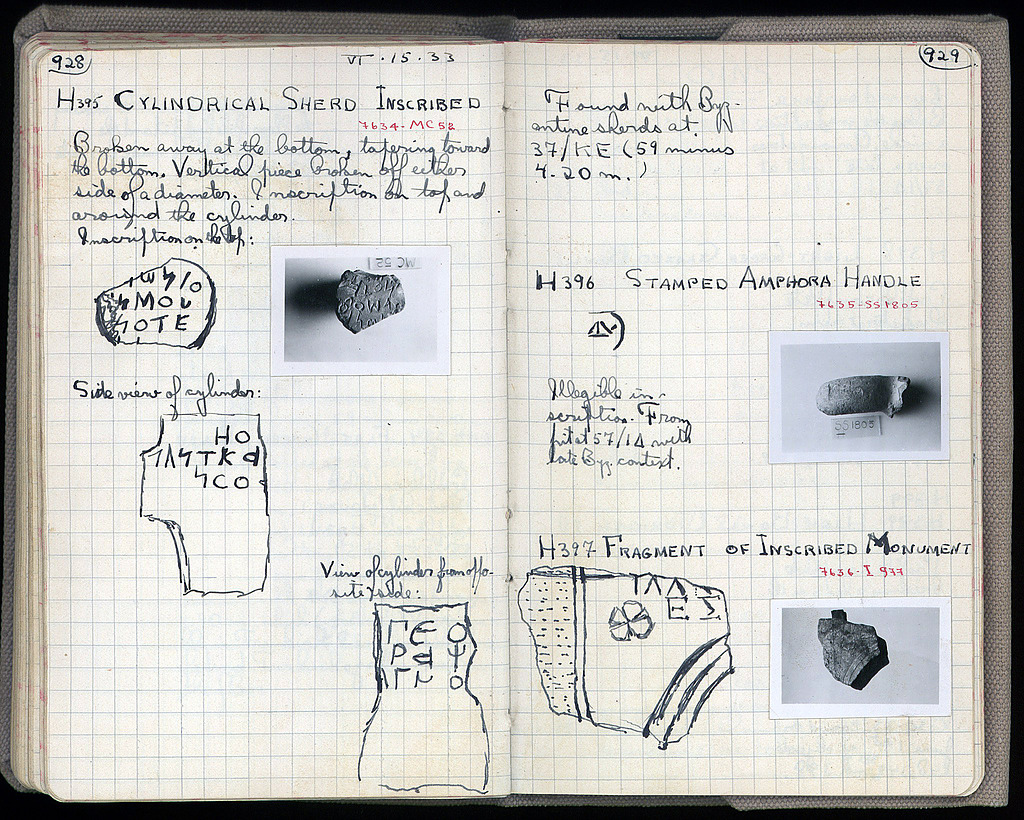 928
VI · 15 · 33
H395 CYLINDRICAL SHERD INSCRIBED
7634 - MC 52
Broken away at the bottom, tapering toward
the bottom. Vertical piece broken off either
side of a diameter. Inscription on top and
around the cylinder.
Inscription on the top:
MC 52
ϟMOU
ϟOTE
Side view of cylinder:
HO
ϟCO
View of cylinder from oppo-
site side:
ΓЄ O
929
Found with Byz-
antine sherds at
37/KE (59 minus
4.20 m.)
H 396 STAMPED AMPHORA HANDLE
7635 - SS 1805
Illegible in-
scription. From
pit at 57/ΙΔ with
late Byz. context.
SS 1805
H397 FRAGMENT OF INSCRIBED MONUMENT
7636 - I 977
ΙΛΛ
ΕΣ